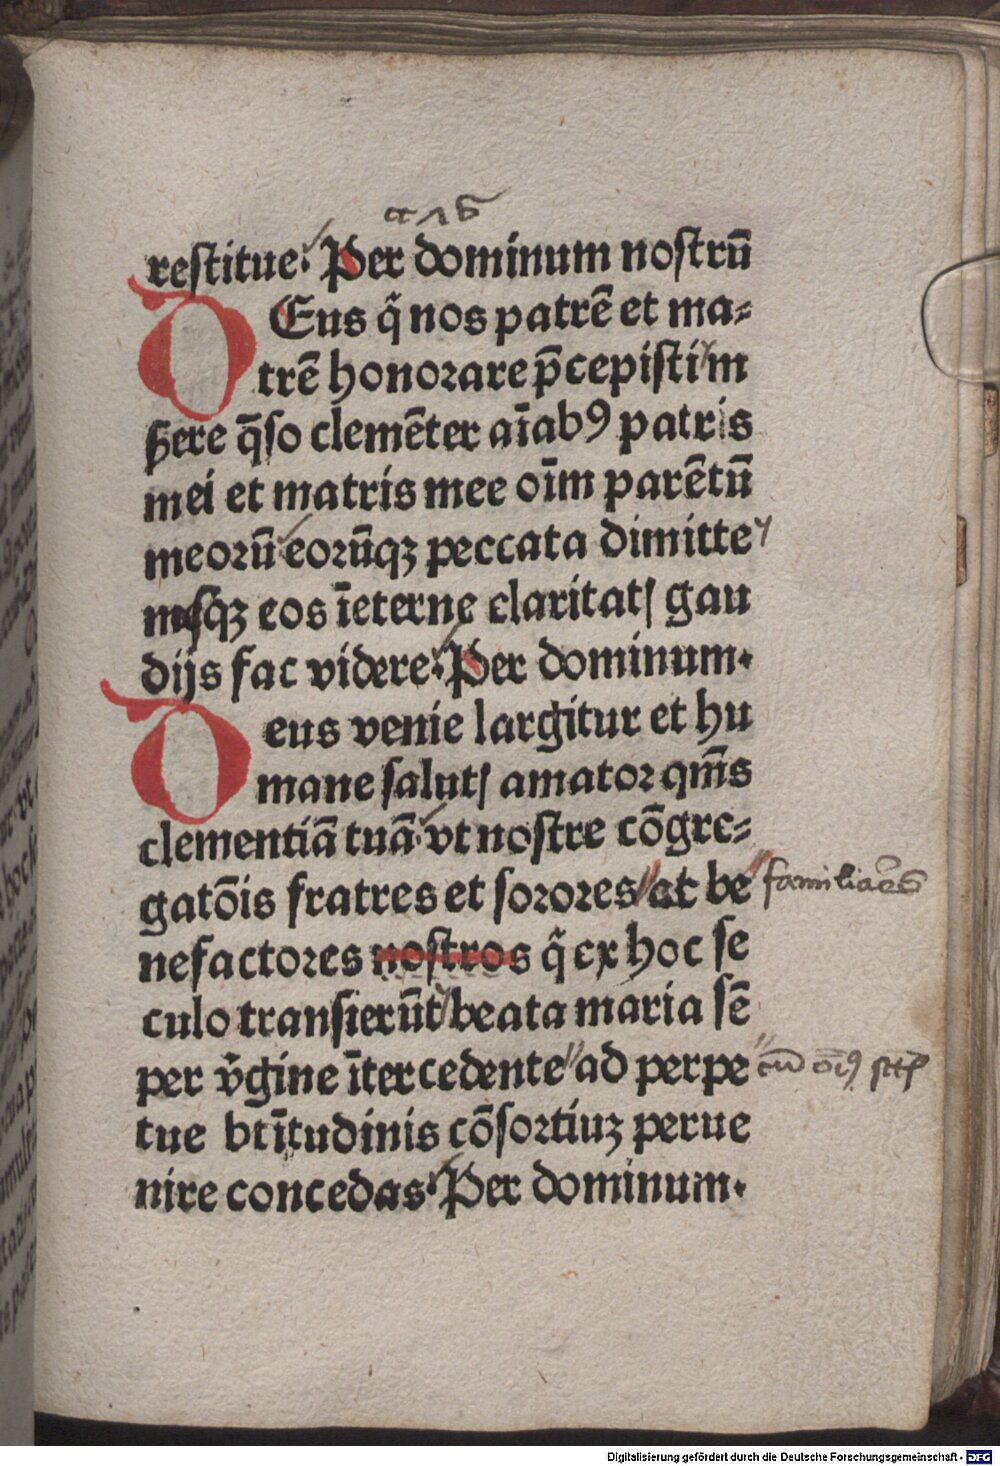 restitue. Per dominum nostrū
DEus q̄ nos patrē et ma⸗
trē honorare p̄cepisti m
ẞere q̄so clemēter aīabꝰ patris
mei et matris mee oīm parētū
meorū eorūqꝫ peccata dimitte
mesqꝫ eos īeterne claritatꝭ gau
dijs fac videre. Per dominum.
Deus venie largitur et hu
mane salutꝭ amator qm̄s
clementiā tuā vt nostre cōgre⸗
gatōis fratres et sorores et be
familiares
nefactores nostros q̄ ex hoc se
culo transierūt beata maria sē
per v̄gine ītercedente ad perpe
cū oībꝰ
tue btītudinis cōsortiuꝫ perue
nire concedas. Per dominum.
Digitalisierung gefördert durch die Deutsche Forschungsgemeinschaft - DFG